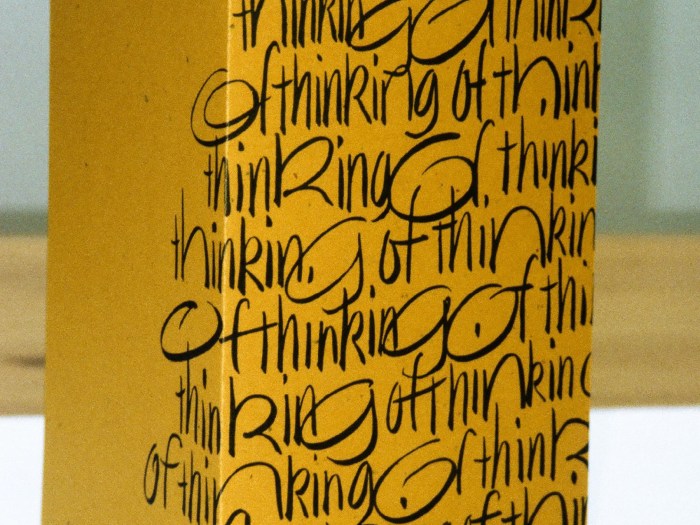 thinking Of think
Of thinking of thin
thinking Of thinki
thinking of thinkin
Of thinking Of thi
thinking of thinking
Of thinking Of think
of thi